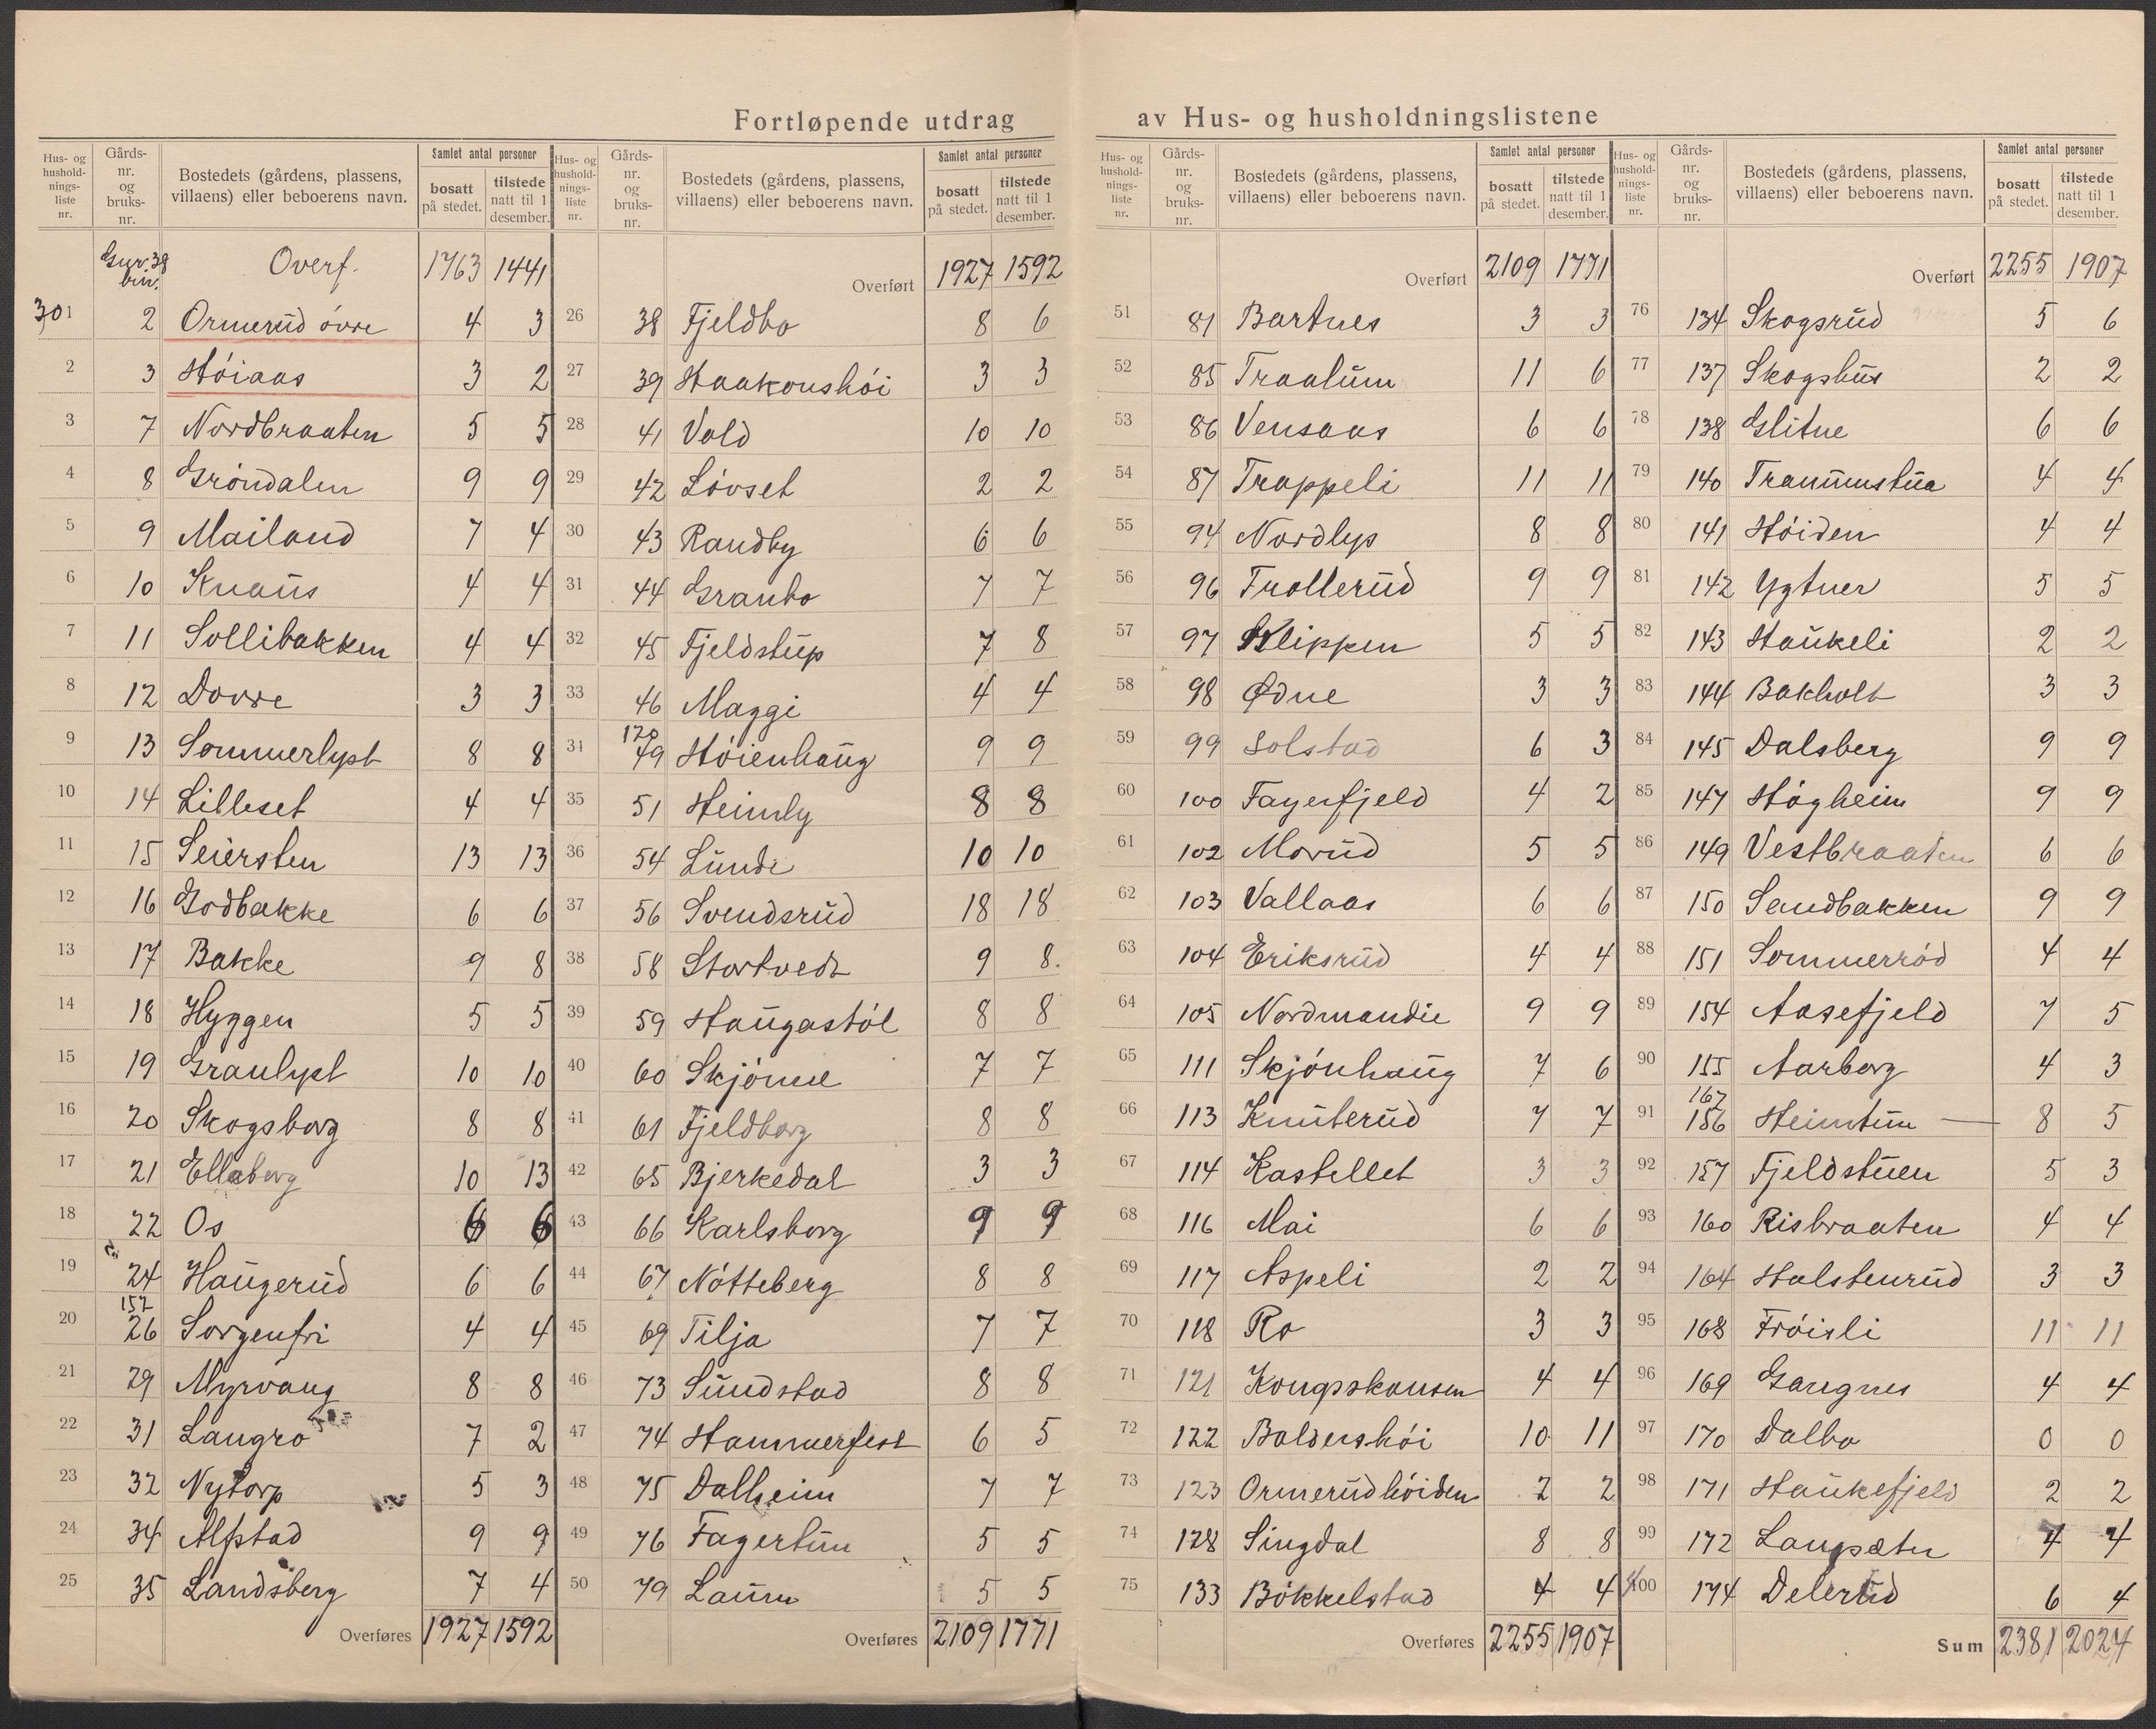 Fortløpende utdrag av Hus- og husholdningslistene
Hus- og husholdnings-liste nr. | Gårds-nr. og bruks-nr. | Bostedets (gårdens, plassens, villaens) eller beboerens navn. | Samlet antal personer | bosatt på stedet. | tilstede natt til 1 desember.
Gnr. 38 bnr. Overf. 1763 1441
301 2 Ormerud övre 4 3
2 3 Höiaas 3 2
3 7 Nordbraaten 5 5
4 8 Gröndalen 9 9
5 9 Mailand 7 4
6 10 Knaus 4 4
7 11 Sollibakken 4 4
8 12 Dovre 3 3
9 13 Sommerlyst 8 8
10 14 Lilleset 4 4
11 15 Seiersten 13 13
12 16 Godbakke 6 6
13 17 Bakke 9 8
14 18 Hyggen 5 5
15 19 Granlyst 10 10
16 20 Skogsborg 8 8
17 21 Ellaberg 10 13
18 22 Os 6 6
19 24 Haugerud 6 6
20 152 26 Sorgenfri 4 4
21 29 Myrvang 8 8
22 31 Langro 7 2
23 32 Nytorp 5 3
24 34 Alfstad 9 9
25 35 Landsberg 7 4
Overføres 1927 1592
Hus- og husholdnings-liste nr. | Gårds-nr. og bruks-nr. | Bostedets (gårdens, plassens, villaens) eller beboerens navn. | Samlet antal personer | bosatt på stedet. | tilstede natt til 1 desember.
Overført 1927 1592
26 38 Fjeldbo 8 6
27 39 Haakonshöi 3 3
28 41 Vold 10 10
29 42 Lövset 2 2
30 43 Randby 6 6
31 44 Granbo 7 7
32 45 Fjeldstup 7 8
33 46 Maggi 4 4
34 120 49 Höienhaug 9 9
35 51 Heimly 8 8
36 54 Lunde 10 10
37 56 Svendsrud 18 18
38 58 Stortvedt 9 8.
39 59 Haugastöl 8 8
40 60 Skjönne 7 7
41 61 Fjeldborg 8 8
42 65 Bjerkedal 3 3
43 66 Karlsborg 9 9
44 67 Nötteberg 8 8
45 69 Tilja 7 7
46 73 Sundstad 8 8
47 74 Hammerfest 6 5
48 75 Dalheim 7 7
49 76 Fagertun 5 5
50 79 Laum 5 5
Overføres 2109 1771
Hus- og husholdnings-liste nr. | Gårds-nr. og bruks-nr. | Bostedets (gårdens, plassens, villaens) eller beboerens navn. | Samlet antal personer | bosatt på stedet. | tilstede natt til 1 desember.
Overført 2109 1771
51 81 Bartnes 3 3
52 85 Traalum 11 6
53 86 Vensaas 6 6
54 87 Trappeli 11 11
55 94 Nordlys 8 8
56 96 Trollerud 9 9
57 97 Klippen 5 5
58 98 Ødne 3 3
59 99 Solstad 6 3
60 100 Fagerfjeld 4 2
61 102 Morud 5 5
62 103 Vallaas 6 6
63 104 Eriksrud 4 4
64 105 Nordmandie 9 9
65 111 Skjönhaug 7 6
66 113 Knuterud 7 7
67 114 Kastellet 3 3
68 116 Mai 6 6
69 117 Aspeli 2 2
70 118 Ro 3 3
71 121 Kongsskansen 4 4
72 122 Baldershöi 10 11
73 123 Ormerudhöiden 2 2
74 128 Singdal 8 8
75 133 Bökkelstad 4 4
Overføres 2255 1907
Hus- og husholdnings-liste nr. | Gårds-nr. og bruks-nr. | Bostedets (gårdens, plassens, villaens) eller beboerens navn. | Samlet antal personer | bosatt på stedet. | tilstede natt til 1 desember.
Overført 2255 1907
76 134 Skogsrud 5 6
77 137 Skogshus 2 2
78 138 Glitne 6 6
79 140 Trammustua 4 4
80 141 Höiden 4 4
81 142 Ygtner 5 5
82 143 Haukeli 2 2
83 144 Bakholt 3 3
84 145 Dalsberg 9 9
85 147 Högheim 9 9
86 149 Vestbraaten 6 6
87 150 Sandbakken 9 9
88 151 Sommerröd 4 4
89 154 Aasefjeld 7 5
90 155 Aarborg 4 3
91 167 156 Heimtun 8 5
92 157 Fjeldstuen 5 3
93 160 Risbraaten 4 4
94 164 Halstenrud 3 3
95 168 Fröisli 11 11
96 169 Gangnes 4 4
97 170 Dalbo 0 0
98 171 Haukefjeld 2 2
99 172 Langsæter 4 4
400 174 Delerud 6 4
Sum 2381 2024